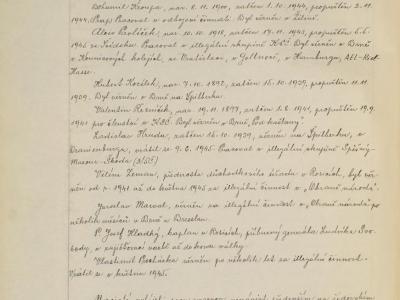 Bohumil Kroupa, nar. 8. 11. 1900, zatčen 1. 10. 1944, propuštěn 2. 11.
1944. Prý Pracoval v odbojové činnosti. Byl vězněn v Žilině.
Alois Pavlíček, nar. 10. 10. 1918, zatčen 17. 11. 1943, propuštěn 6. 6.
1945 ze Švédska. Pracoval v illegální skupině KSČ. Byl vězněn v Brně
v Kounicových kolejích, ve Vratislavi, v Gollnově, v Hamburgu,
Hasse.
Hubert Kozílek, nar. 7. 10. 1892, zatčen 15. 10. 1939, propuštěn 11. 11.
1939. Byl vězněn v Brně na Špilberku.
Valentin Řezníček, nar. 19. 11. 1897, zatčen 2. 8. 1941, propuštěn 19. 9.
1941 pro členství v KSČ. Byl vězněn v Brně „Pod kaštany".
Ladislav Hruda, zatčen 16. 10. 1939, vězněn na Špilberku, v
Oranienburgu, vrátil se 9. 6. 1945. Pracoval v illegální skupině
Škoda
Vilém Zeman, přednosta důchodkového úřadu v Rosicích, byl věz-
něn od 7. 1941 až do května 1945 za illegální činnost v „Obraně národa".
Jaroslav Marvot, vězněn za illegální činnost v „Obraně národa" po
několik měsíců v Brně a Breslau.
P. Josef Hladký, kaplan v Rosicích, příbuzný generála Ludvíka Svo-
body, v zajišťovací vazbě až do konce války.
Vlastimil vězněn po několik let za illegální činnost.
Vrátil se v květnu 1945.